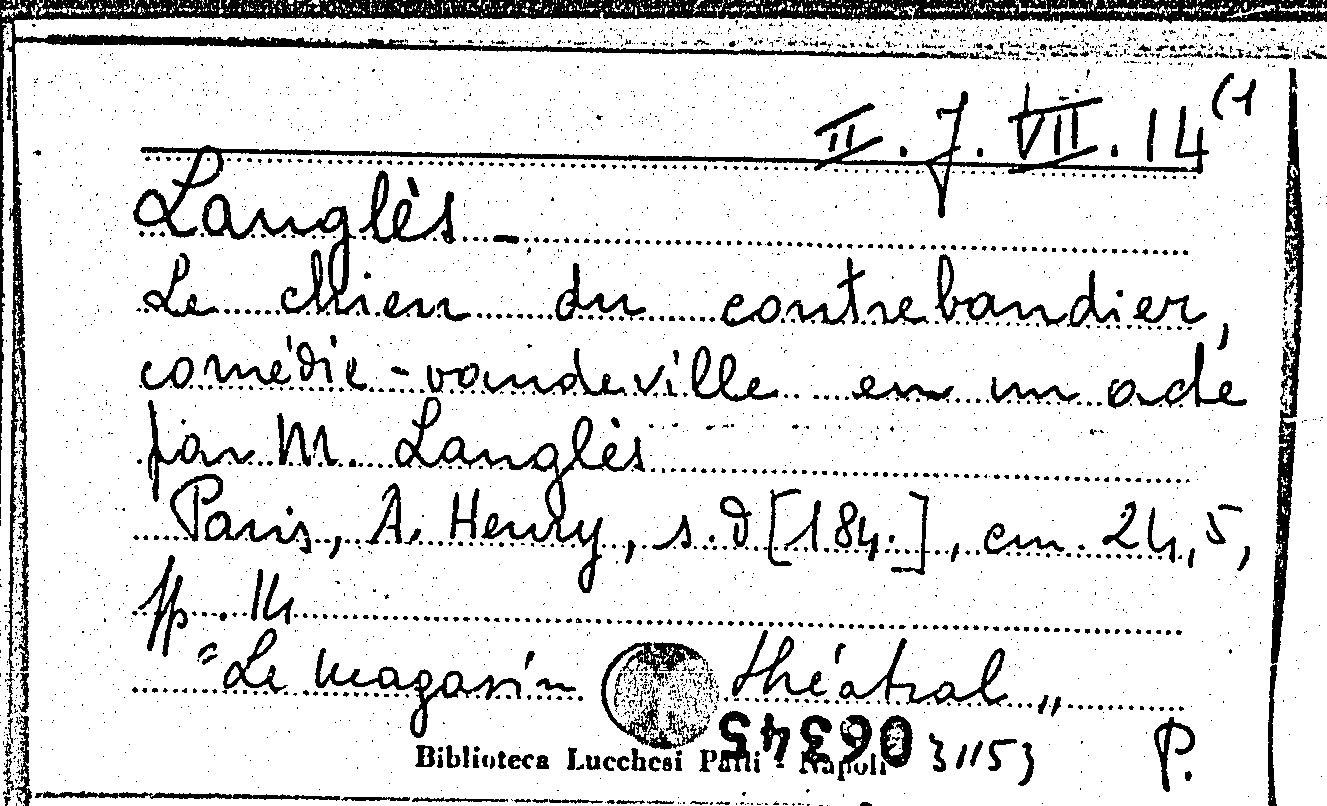 II. J. VII. 14(1
Langlès -
Le chien du contrebandier,
comédie-vaudeville en un acte
par M. Langlès
Paris, A. Henry, s.d [184.], cm. 24,5,
pp. 14
"Le magasin théatral"
063945
Biblioteca Lucchesi Palli - Napoli 31153 P.